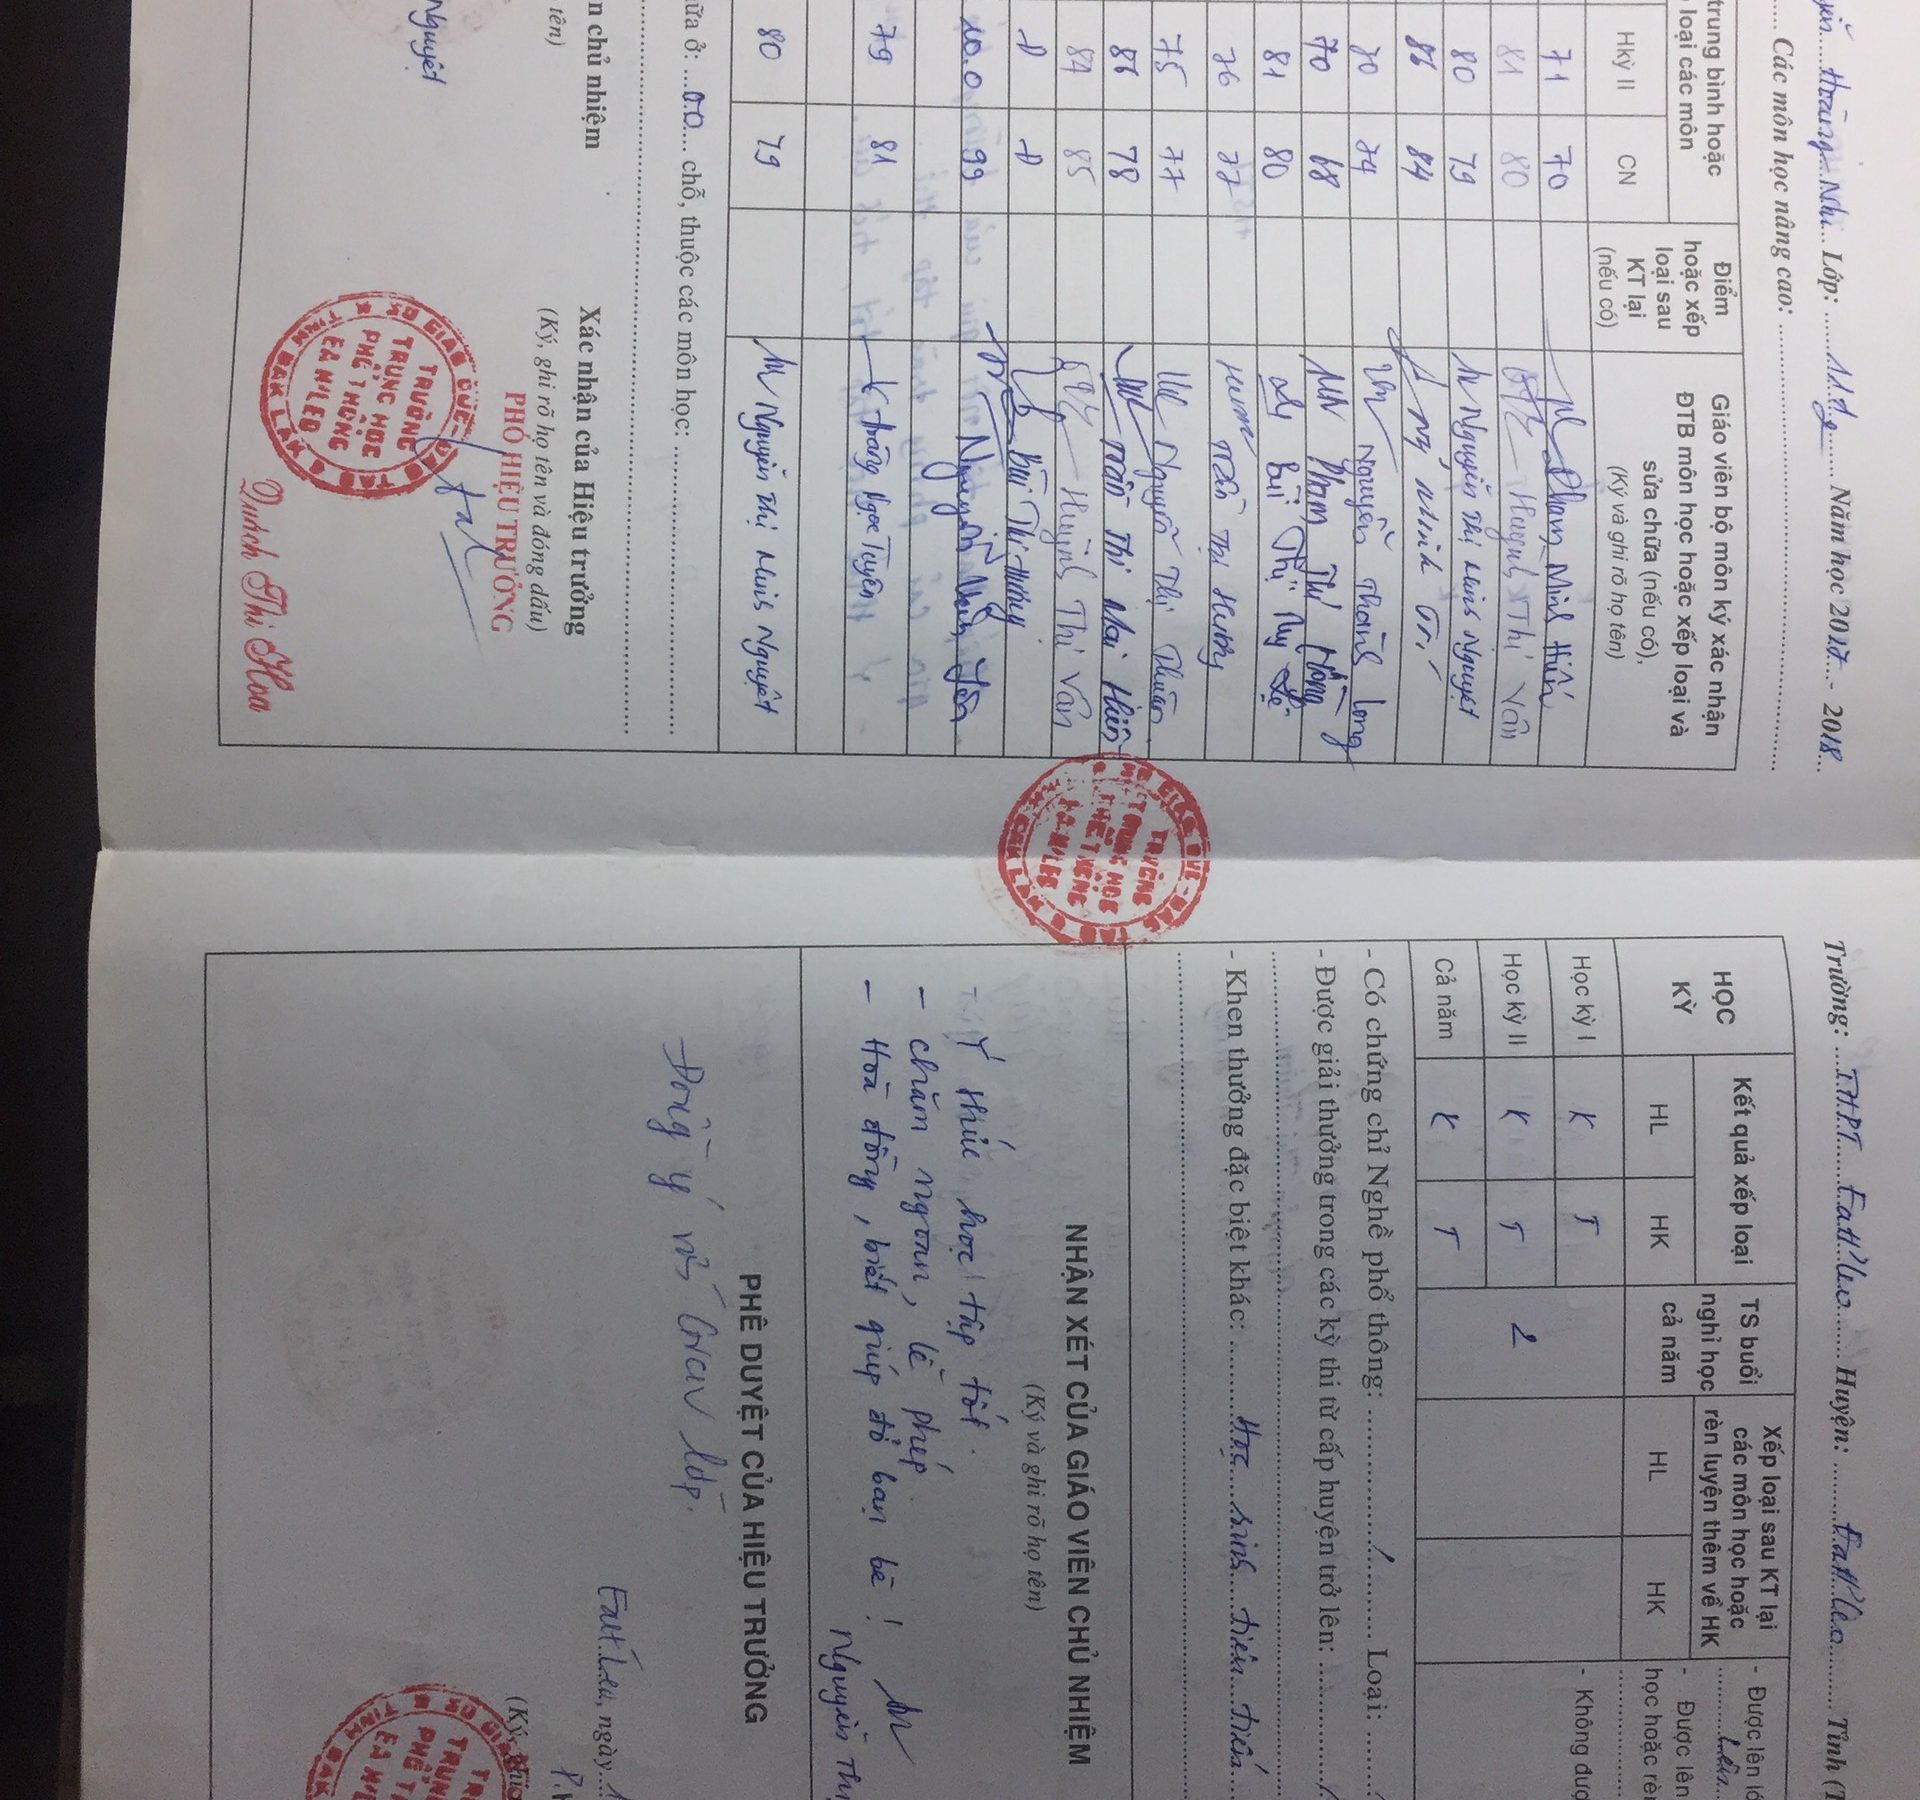 Hoàng Nhi Lớp: 11A Năm học 2017 - 2018
Các môn học nâng cao:
trung bình hoặc
loại các môn
Hkỳ II
CN
Điểm
hoặc xếp
loại sau
KT lại
(nếu có)
Giáo viên bộ môn ký xác nhận
ĐTB môn học hoặc xếp loại và
sửa chữa (nếu có),
(Ký và ghi rõ họ tên)
71 70 Phạm Minh Hiến
81 80 Huỳnh Thị Vân
80 79 Nguyễn Thị Minh Nguyệt
86 84 Minh Trí
70 74 Nguyễn Thành Long
70 68 Phạm Thị Hồng
81 80 Bùi Thị Mỹ Lệ
76 77 Trần Thị Hương
75 77 Nguyễn Thị Thuần
86 78 Trần Thị Mai Hiên
84 85 Huỳnh Thị Vân
Đ Đ Bùi Thị Hương
10.0 99 Nguyễn Văn
79 81 Ngọc Tuyên
80 79 Nguyễn Thị Minh Nguyệt
sữa ở: 00 chỗ, thuộc các môn học:
n chủ nhiệm
tên)
Nguyệt
Xác nhận của Hiệu trưởng
(Ký, ghi rõ họ tên và đóng dấu)
PHÓ HIỆU TRƯỞNG
SỞ GIÁO DỤC - ĐÀO TẠO
TỈNH ĐẮK LẮK
TRƯỜNG
TRUNG HỌC
PHỔ THÔNG
EA H'LEO
Thị Hoa
TRƯỜNG
TRUNG HỌC
PHỔ THÔNG
EA H'LEO
Trường: THPT EaH'leo Huyện: EaH'leo Tỉnh
HỌC
KỲ
Kết quả xếp loại
HL
HK
TS buổi
nghỉ học
cả năm
Xếp loại sau KT lại
các môn học hoặc
rèn luyện thêm về HK
HL
HK
- Được lên
- Được lên
học hoặc rè
- Không đượ
Học kỳ I K T
Học kỳ II K T 2
Cả năm K T
- Có chứng chỉ Nghề phổ thông: / Loại: /
- Được giải thưởng trong các kỳ thi từ cấp huyện trở lên: /
- Khen thưởng đặc biệt khác: Học sinh tiên tiến
NHẬN XÉT CỦA GIÁO VIÊN CHỦ NHIỆM
(Ký và ghi rõ họ tên)
- Ý thức học tập tốt.
- Chăm ngoan, lễ phép
- Hoà đồng, biết giúp đỡ bạn bè!
Nguyễn Th
PHÊ DUYỆT CỦA HIỆU TRƯỞNG
Đồng ý với GVCN lớp.
EaH'leo, ngày
(Ký, ghi
TRUNG
PHỔ T
EA H'L